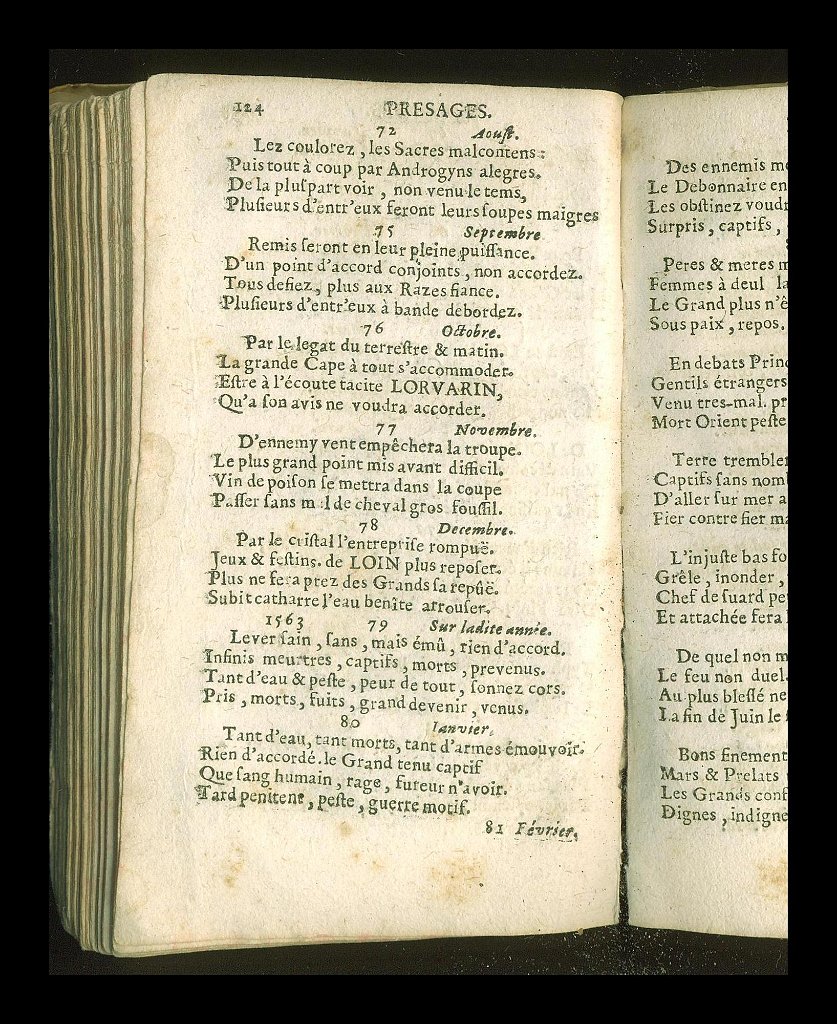 124 PRESAGES.
72 Aouſt.
Lez coulorez, les Sacres malcontens:
Puis tout à coup par Androgyns alegres.
De la pluſpart voir, non venu le tems,
Pluſieurs d'entr'eux feront leurs ſoupes maigres
75 Septembre
Remis ſeront en leur pleine puiſſance.
D'un point d'accord conjoints, non accordez.
Tous defiez, plus aux Razes fiance.
Pluſieurs d'entr'eux à bande debordez.
76 Octobre.
Par le legat du terreſtre & matin.
La grande Cape à tout s'accommoder.
Eſtre à l'écoute tacite LORVARIN,
Qu'a ſon avis ne voudra accorder.
77 Novembre.
D'ennemy vent empêchera la troupe.
Le plus grand point mis avant difficil.
Vin de poiſon ſe mettra dans la coupe
Paſſer ſans mal de cheval gros fouſſil.
78 Decembre.
Par le criſtal l'entrepriſe rompuë.
Jeux & feſtins. de LOIN plus repoſer.
Plus ne fera prez des Grands ſa repûë.
Subit catharre l'eau benîte arrouſer.
1563 79 Sur ladite année.
Lever ſain, ſans, mais émû, rien d'accord.
Infinis meurtres, captifs, morts, prevenus.
Tant d'eau & peſte, peur de tout, ſonnez cors.
Pris, morts, fuits, grand devenir, venus.
80 Ianvier.
Tant d'eau, tant morts, tant d'armes émouvoir.
Rien d'accordé. le Grand tenu captif
Que ſang humain, rage, fureur n'avoir.
Tard penitent, peſte, guerre motif.
81 Février.
Des ennemis
Le Debonnaire en
Les obſtinez
Surpris, captifs,
Peres & meres
Femmes à deul
Le Grand plus
Sous paix, repos.
En debats
Gentils étrangers
Venu tres-mal.
Mort Orient peſte
Terre
Captifs ſans
D'aller ſur mer
Fier contre fier
L'injuſte bas
Grêle, inonder,
Chef de ſuard
Et attachée fera
De quel non
Le feu non duel.
Au plus bleſſé ne
La fin de Juin le
Bons finement
Mars & Prelats
Les Grands
Dignes, indigne